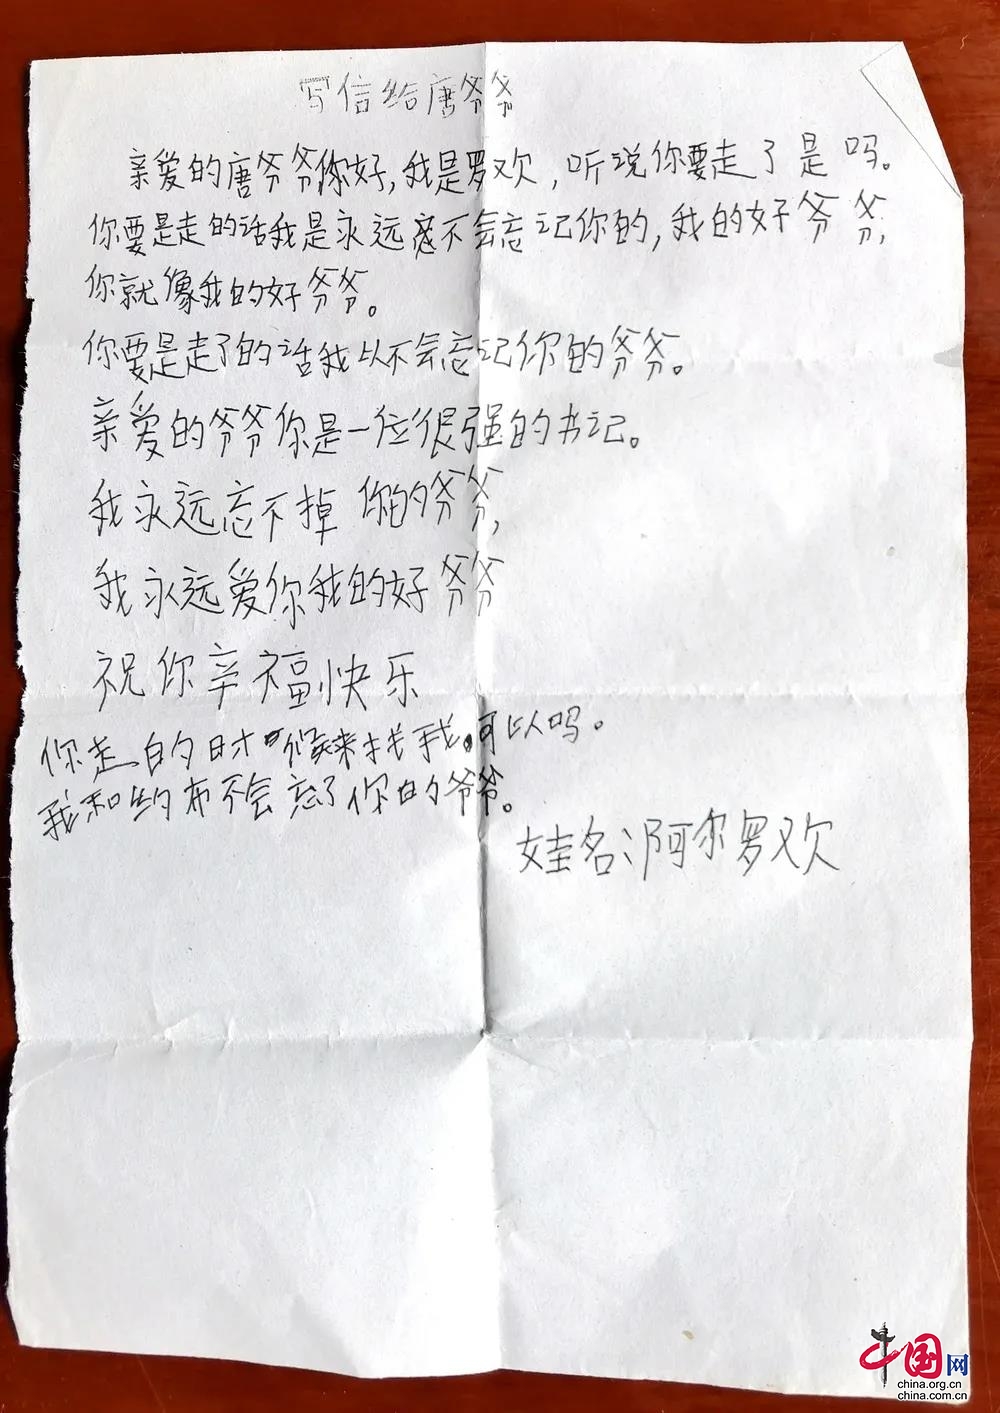 写信给唐爷爷
亲爱的唐爷爷你好,我是罗欢,听说你要走了是吗。
你要是走的话我是永远不会忘记你的,我的好爷爷,
你就像我的好爷爷。
你要是走了的话我以不会忘记你的爷爷。
亲爱的爷爷你是一位很强的书记。
我永远忘不掉你的爷爷,
我永远爱你我的好爷爷
祝你辛福快乐
你走的时候来找我可以吗。
我和约布不会忘了你的爷爷。
娃名:阿尔罗欢
中国网
china.org.cn
china.com.cn